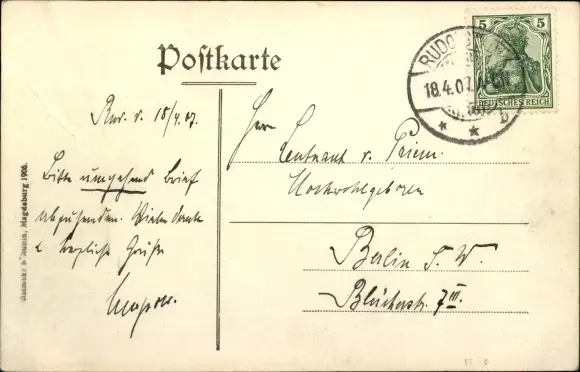 Postkarte
5 5
DEUTSCHES REICH
18.4.07.
b
Rud. d. 18/4.07.
Bitte umgehend Brief
abzusenden. Vielen Dank
u herzliche Grüße
Herrn
Leutnant v. Priem.
Hochwohlgeboren
Berlin S. W.
Blücherstr. 7 III.
Magdeburg 1906.